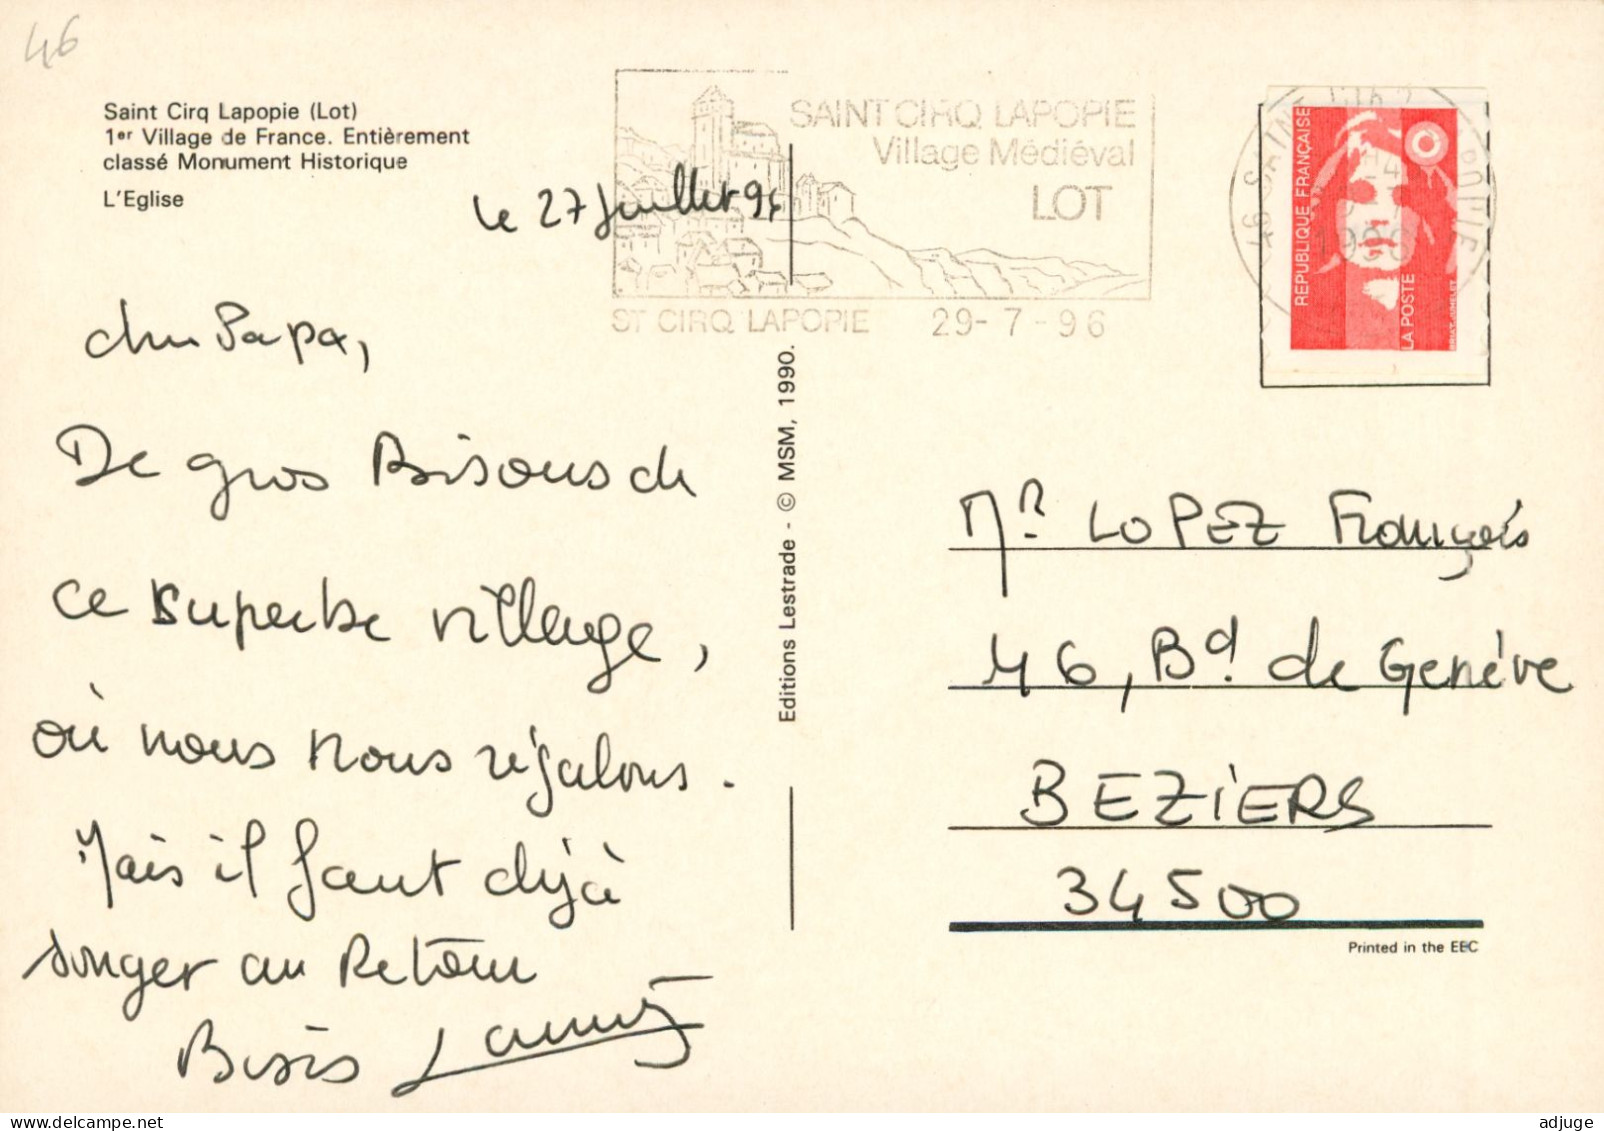 46
Saint Cirq Lapopie (Lot)
1er Village de France. Entièrement
classé Monument Historique
L'Eglise
le 27 Juillet 96
Cher Papa,
De gros Bisous de
ce superbe village,
où nous nous régalons.
Mais il faut déjà
songer au Retour
Bisis
SAINT CIRQ LAPOPIE
Village Médiéval
LOT
ST CIRQ LAPOPIE 29-7-96
REPUBLIQUE FRANÇAISE
LA POSTE
1996
Editions Lestrade - © MSM, 1990.
Mr LOPEZ François
46, Bd de Genève
BEZiERS
34500
Printed in the EEC
adjuge